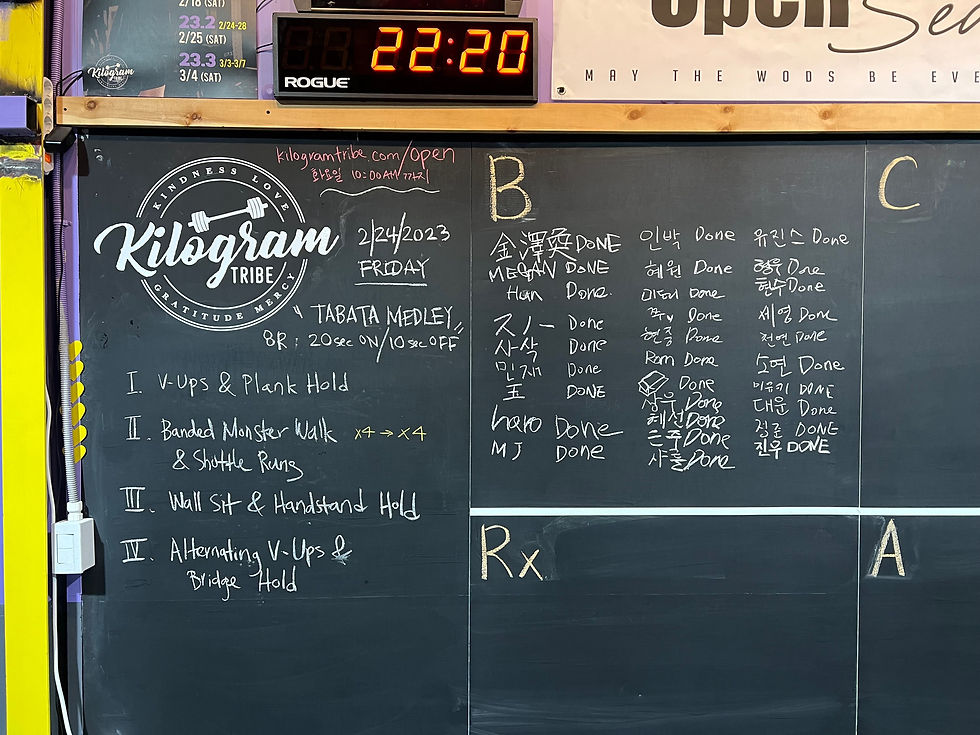 2/18 (SAT)
23.2 2/24-28
2/25 (SAT)
23.3 3/3-3/7
3/4 (SAT)
Kilogram
22:20
ROGUE
Open
MAY THE WODS BE EVE
kilogramtribe.com/open
화요일 10:00AM까지
KINDNESS LOVE
Kilogram
TRIBE
GRATITUDE MERCY
2/24/2023
FRIDAY
"TABATA MEDLEY"
8R: 20sec ON/10sec OFF
I. V-Ups & Plank Hold
II. Banded Monster Walk x4→x4
& Shuttle Runs
III. Wall Sit & Handstand Hold
IV. Alternating V-Ups &
Bridge Hold
B
金澤奐 DONE
MEGAN DONE
Han Done.
スノー Done
사삭 Done
민지 Done
玉 DONE
haro Done
MJ Done
인박 Done
혜원 Done
Done
Done
현중 Done
Ram Done
Done
상우 Done
혜선 Done
은주 Done
샤흘 Done
유진스 Done
형우 Done
현수 Done
세영 Done
전연 Done
소연 Done
DONE
대운 Done
정준 DONE
진우 DONE
C
Rx
A